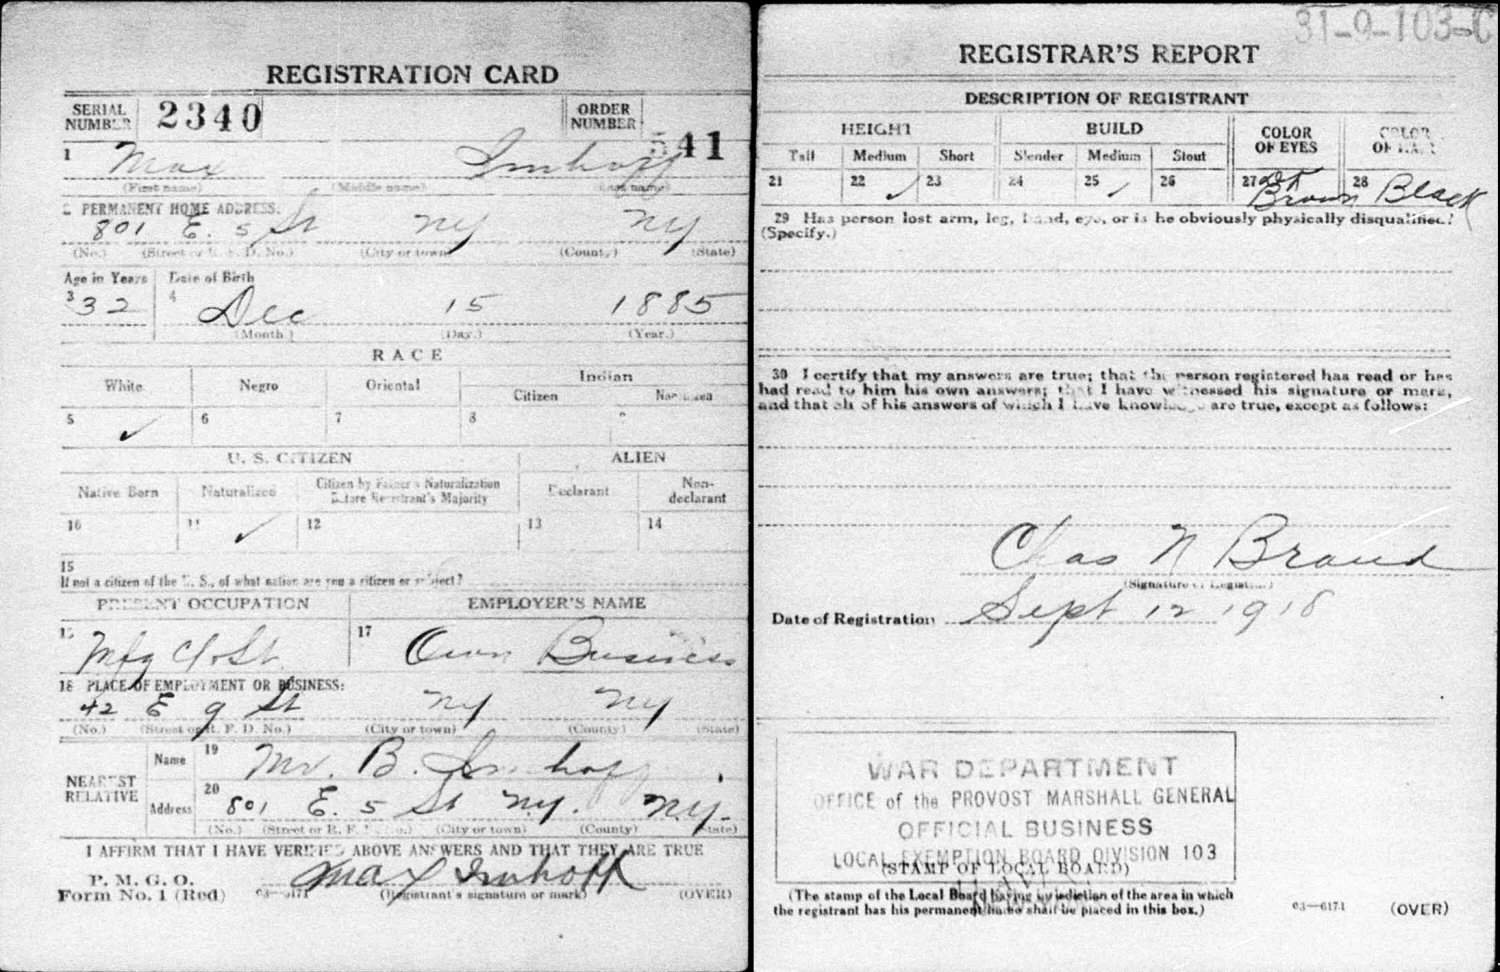 REGISTRATION CARD
SERIAL NUMBER 2340 ORDER NUMBER 541
1 Max Imhoff
(First name) (Middle name) (Last name)
2 PERMANENT HOME ADDRESS.
801 E. 5 St NY NY
(No.) (Street or R. F. D. No.) (City or town) (County) (State)
Age in Years Date of Birth
3 32 4 Dec 15 1885
(Month) (Day.) (Year.)
RACE
White Negro Oriental Indian
Citizen Noncitizen
5 ✓ 6 7 8 9
U. S. CITIZEN ALIEN
Native Born Naturalized Citizen by Father's Naturalization Before Registrant's Majority Declarant Non-declarant
10 11 ✓ 12 13 14
15
If not a citizen of the U. S., of what nation are you a citizen or subject?
PRESENT OCCUPATION EMPLOYER'S NAME
16 Mfg 17 Own Business
18 PLACE OF EMPLOYMENT OR BUSINESS:
42 E 9 St NY NY
(No.) (Street or R. F. D. No.) (City or town) (County) (State)
NEAREST RELATIVE
Name 19 Mr. B. Imhoff
Address 20 801 E. 5 St N.Y. N.Y.
(No.) (Street or R. F. D. No.) (City or town) (County) (State)
I AFFIRM THAT I HAVE VERIFIED ABOVE ANSWERS AND THAT THEY ARE TRUE
P. M. G. O.
Form No. 1 (Red) 03—6171 Max Imhoff
(Registrant's signature or mark) (OVER)
31-9-103-C
REGISTRAR'S REPORT
DESCRIPTION OF REGISTRANT
HEIGHT BUILD COLOR OF EYES COLOR OF HAIR
Tall Medium Short Slender Medium Stout
21 22 ✓ 23 24 25 ✓ 26 27 Brown 28 Black
29 Has person lost arm, leg, hand, eye, or is he obviously physically disqualified?
(Specify.)
30 I certify that my answers are true; that the person registered has read or has
had read to him his own answers; that I have witnessed his signature or mark,
and that all of his answers of which I have knowledge are true, except as follows:
Chas N Braud
(Signature of Registrar)
Date of Registration Sept 12 1918
WAR DEPARTMENT
OFFICE of the PROVOST MARSHALL GENERAL
OFFICIAL BUSINESS
LOCAL EXEMPTION BOARD DIVISION 103
(STAMP OF LOCAL BOARD)
(The stamp of the Local Board having jurisdiction of the area in which
the registrant has his permanent home shall be placed in this box.)
03—6171 (OVER)